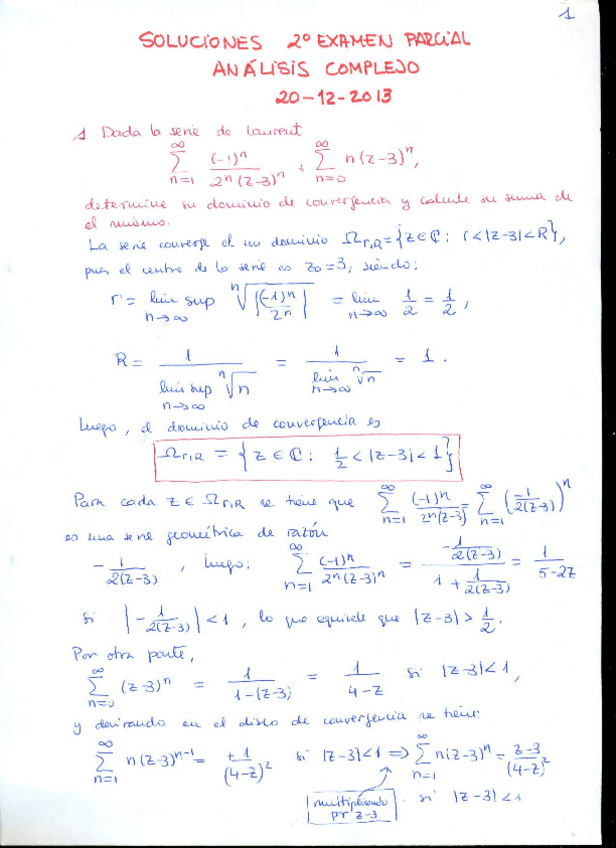 1
SOLUCIONES 2º EXAMEN PARCIAL
ANÁLISIS COMPLEJO
20-12-2013
1 Dada la serie de Laurent
∑_{n=1}^{∞} (-1)^n / 2^n (z-3)^n + ∑_{n=0}^{∞} n(z-3)^n,
determine su dominio de convergencia y calcule su suma de
el mismo.
La serie converge el un dominio Ω_{r,R} = {z ∈ ℂ : r < |z-3| < R},
pues el centro de la serie es z₀=3, siendo:
r = lim sup_{n→∞} ⁿ√|(-1)^n / 2^n| = lim_{n→∞} 1/2 = 1/2,
R = 1 / lim sup_{n→∞} ⁿ√n = 1 / lim_{n→∞} ⁿ√n = 1.
Luego, el dominio de convergencia es
Ω_{r,R} = {z ∈ ℂ : 1/2 < |z-3| < 1}
Para cada z ∈ Ω_{r,R} se tiene que ∑_{n=1}^{∞} (-1)^n / 2^n(z-3) = ∑_{n=1}^{∞} (-1 / 2(z-3))^n
es una serie geométrica de razón
- 1 / 2(z-3), luego: ∑_{n=1}^{∞} (-1)^n / 2^n (z-3)^n = (-1 / 2(z-3)) / (1 + 1 / 2(z-3)) = 1 / 5-2z
si |- 1 / 2(z-3)| < 1, lo que equivale que |z-3| > 1/2.
Por otra parte,
∑_{n=0}^{∞} (z-3)^n = 1 / 1-(z-3) = 1 / 4-z si |z-3|<1,
y derivando en el disco de convergencia se tiene:
∑_{n=1}^{∞} n(z-3)^{n-1} = +1 / (4-z)^2 si |z-3|<1 ⇒ ∑_{n=1}^{∞} n(z-3)^n = z-3 / (4-z)^2
multiplicando
por z-3
si |z-3|<1